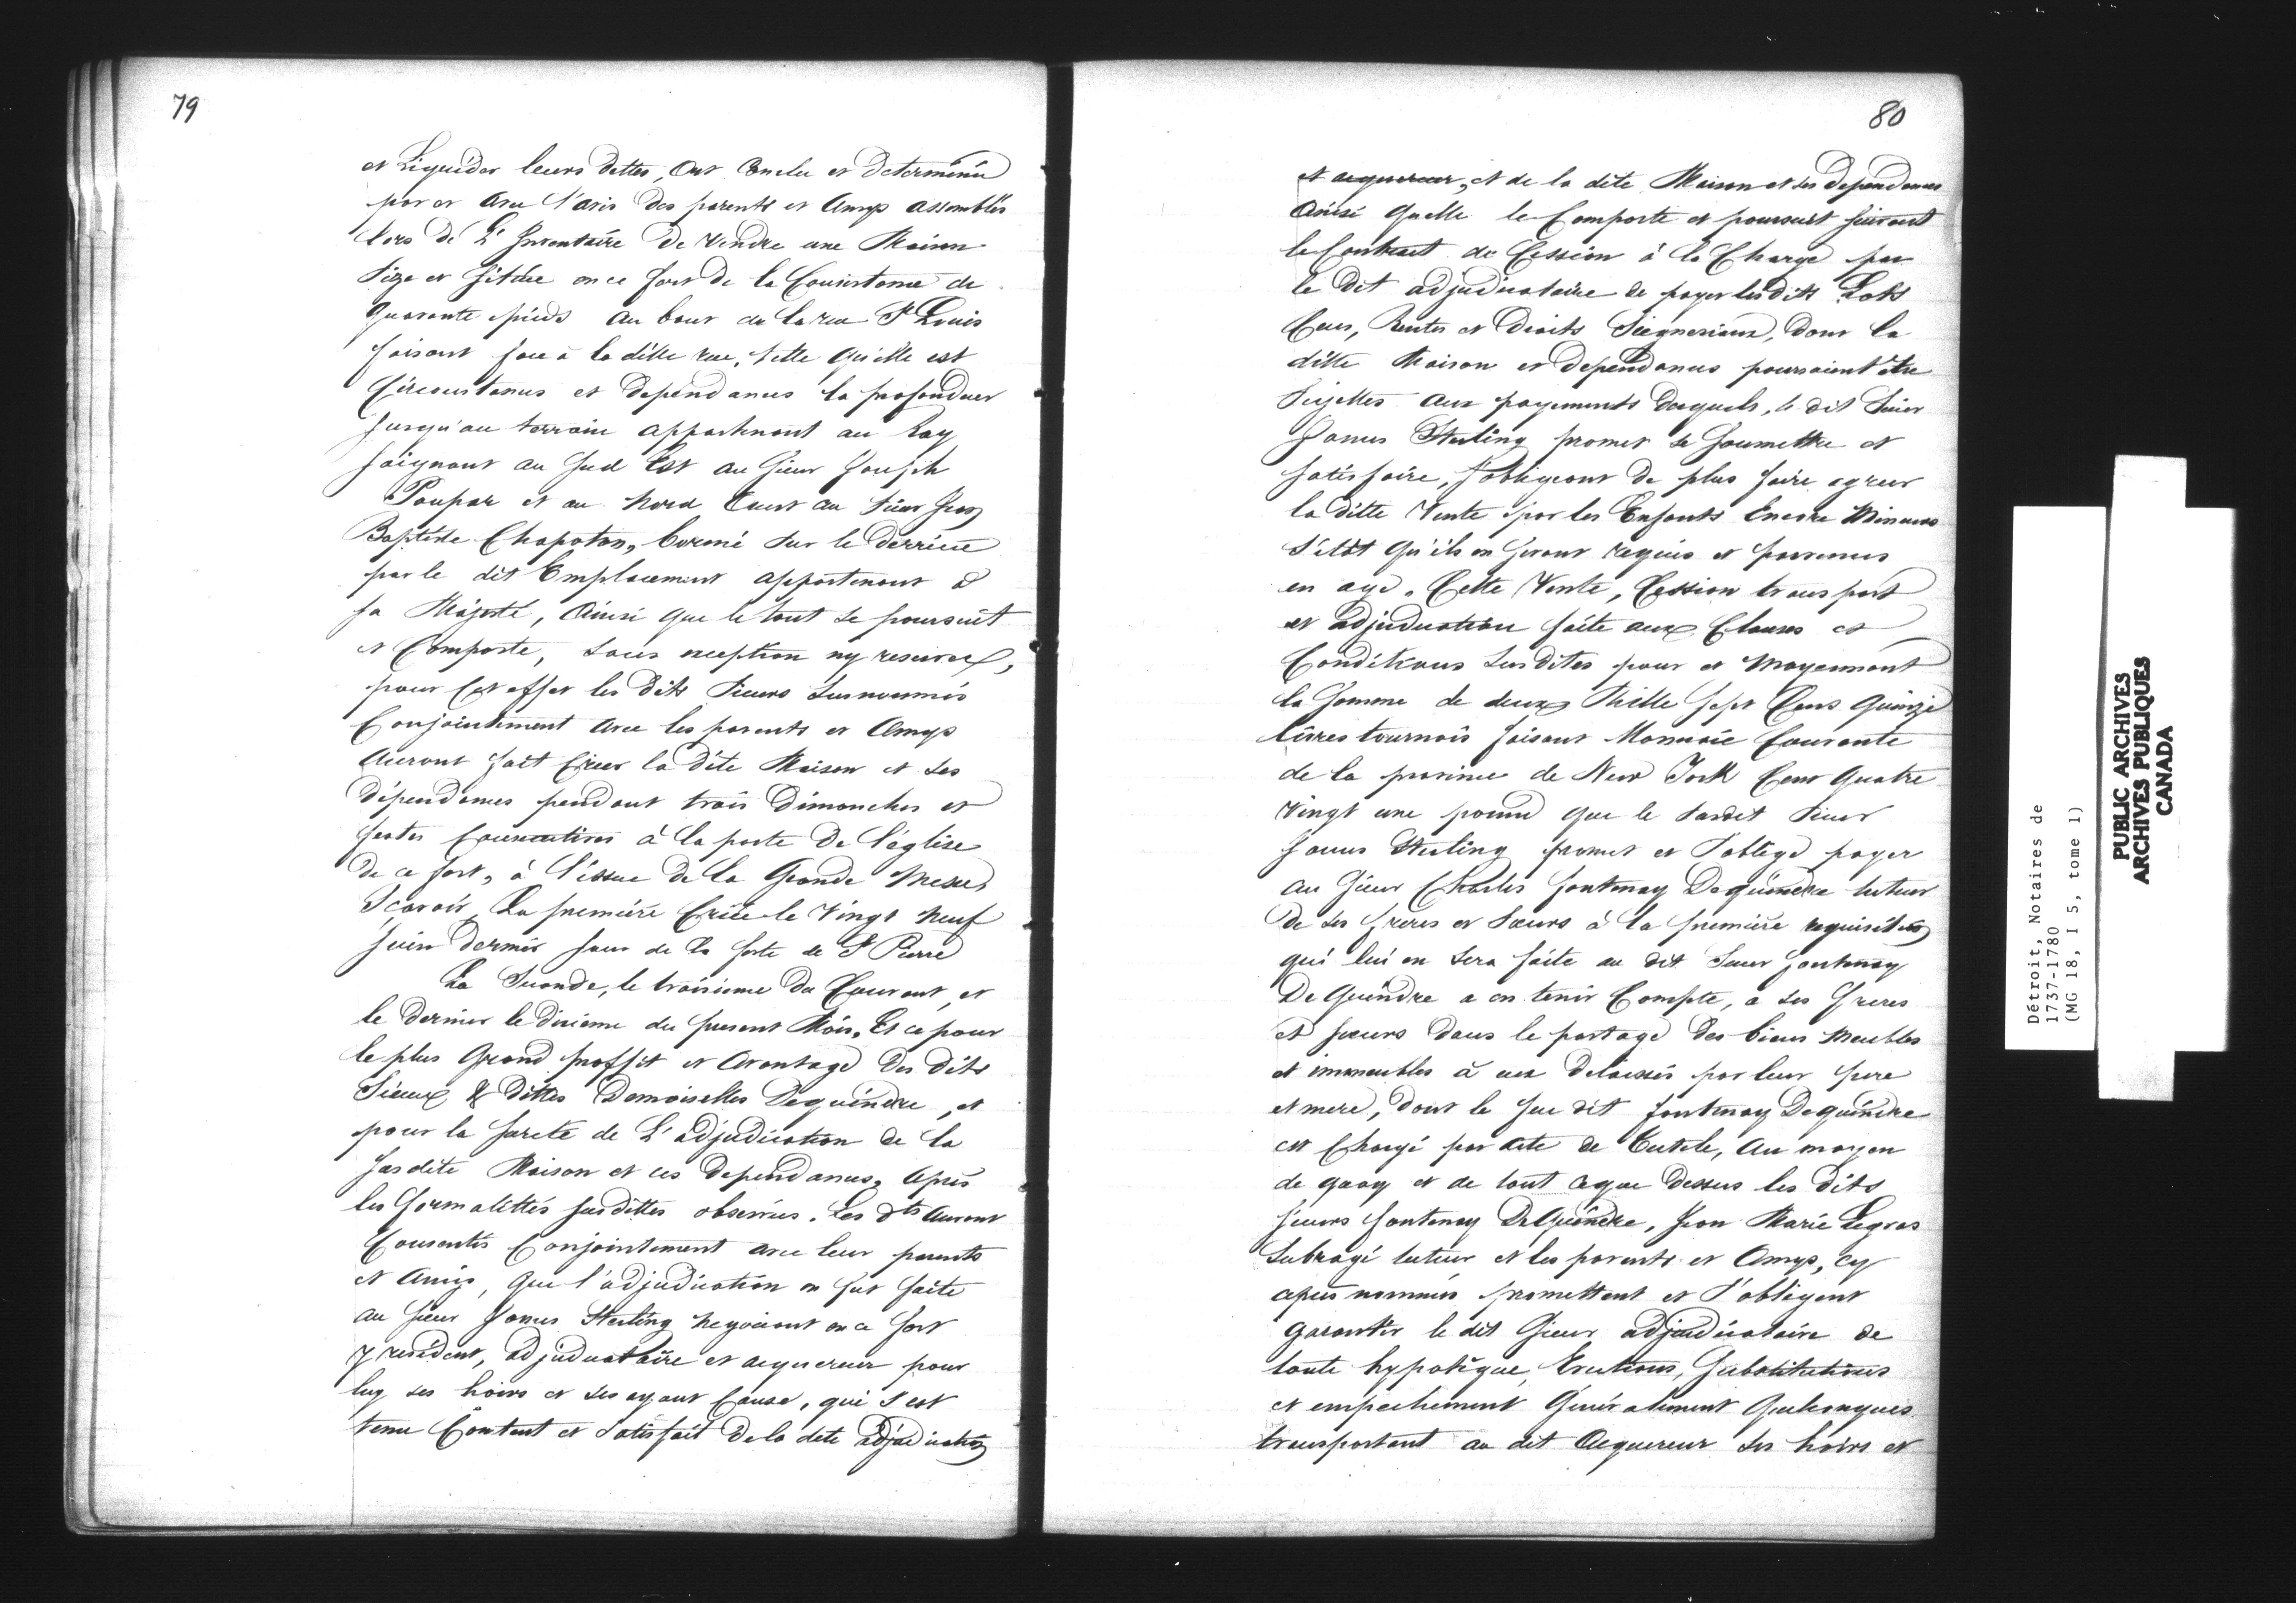 79
et Liquider leurs dettes, Ont Conclu et Determinée
par et avec l'avis des parents et Amys assemblés
lors de L'Inventaire de Vendre une Maison
Size et Sitüée en ce fort de la Consistance de
Quarante pieds au bout de la rue St Louis
faisant face à la ditte rue, telle qu'elle est
Circonstances et dependances la profondeur
jusqu'au terrain appartenant au Roy
joignant au Sud Est au Sieur Joseph
Poupar et au Nord Ouest au Sieur Jean
Baptiste Chapoton, borné sur le derriere
par le dit Emplacement appartenant à
sa Majesté, Ainsi que le tout se poursuit
et Comporte, sans exception ny reserve,
pour Cet effet les dits Sieurs susnommés
Conjointement avec les parents et Amys
Auront fait Crier la dite Maison et ses
dépendances pendant trois Dimanches et
festes Consecutives à la porte de l'église
de ce fort, à l'issue de la Grande Messe,
Sçavoir, La première Criée le Vingt neuf
Juin dernier jour de la feste de St Pierre
La Seconde, le troisieme du Courant, et
le dernier le dixieme du present Mois, Et ce pour
le plus Grand proffit et Avantage des dits
Sieurs & dittes Demoiselles Dequindre, et
pour la sureté de L'adjudication de la
susdite Maison et ces dependances, Après
les formalittés susdittes observées. Les dts Auront
Consentis Conjointement avec leur parents
et Amis, que l'adjudication en fut faite
au Sieur James Sterling Negociant en ce fort
y resident, adjudicataire et acquereur pour
luy ses hoirs et ses ayant Cause, qui s'est
tenu Content et Satisfait de la dite adjudication
80
et acquereur, et de la dite Maison et ses dependances
Ainsi quelle le Comporte et poursuit suivant
le Contract de Cession à la Charge par
le dit adjudicataire de payer les dits Lots
Cens, Rentes et Droits Seigneriaux, dont la
ditte Maison et dependances pourroient être
Sujettes aux payements desquels, le dit Sieur
James Sterling promet se soumettre et
satisfaire, s'obligeant de plus faire agreer
la ditte Vente par les Enfants Encore Mineurs
sitôt qu'ils en seront requis et parvenus
en age. Cette Vente, Cession transport
et adjudication faite aux Clauses et
Conditions susdites pour et Moyennant
la Somme de deux Mille Sept Cens Quinze
livres tournois faisant Monnaie Courante
de la province de New York Cent Quatre
Vingt une pound que le susdit Sieur
James Sterling promet et S'oblige payer
au Sieur Charles fontenay Dequindre tuteur
de ses freres et Sœurs à la première requisition
qui lui en sera faite au dit Sieur fontenay
De Quindre a en tenir Compte, a ses freres
et sœurs dans le partage des biens Meubles
et immeubles à eux delaissés par leur pere
et mere, dont le sus dit fontenay Dequindre
est Chargé par acte de Tutele, Au moyen
de quoy et de tout ce que Dessus les dits
Sieurs fontenay DeQuindre, Jean Marie Legras
Subrogé tuteur et les parents et Amys, cy
après nommés promettent et S'obligent
garantir le dit Sieur adjudicataire de
toute hypotèque, Evictions, Substitutions
et empechement Généralement Quelconques
transportant au dit Acquereur ses hoirs et
Détroit, Notaires de
1737-1780
(MG 18, I 5, tome 1)
PUBLIC ARCHIVES
ARCHIVES PUBLIQUES
CANADA